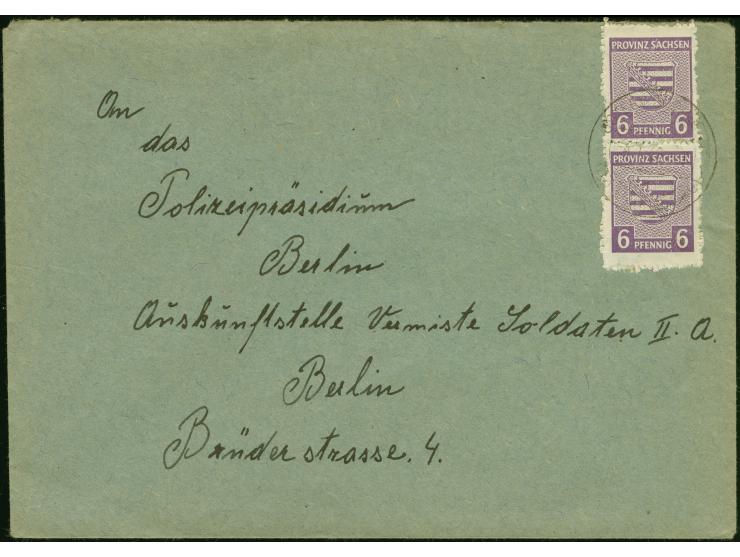 An
das
Polizeipräsidium
Berlin
Auskunftstelle Vermiste Soldaten II. A.
Berlin
Brüderstrasse. 4.
PROVINZ SACHSEN
6 PFENNIG 6
PROVINZ SACHSEN
6 PFENNIG 6